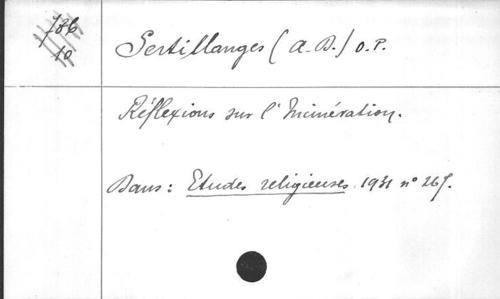 736
10
Sertillanges (A.D.) O.P.
Réflexions sur l'Incinération.
Dans: Etudes religieuses. 1931 n° 267.